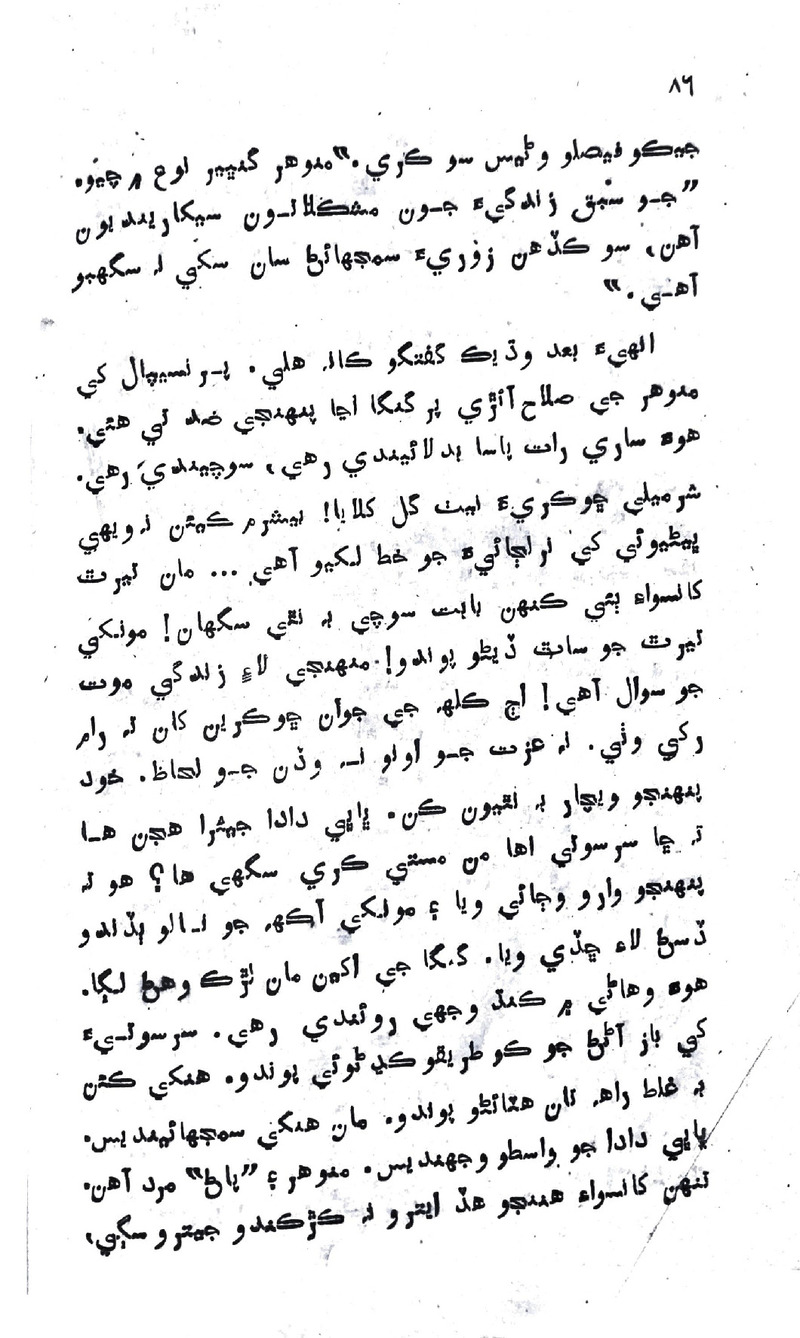 ٨٦
جيڪو فيصلو وڻيس سو ڪري.” منوهر گنڀير لوح ۾ چيو.
”جو سبق زندگيءَ جون مشڪلاتون سيکارينديون
آهن، سو ڪڏهن زوريءَ سمجهائڻ سان سکي نہ سگهبو
آهي.”
انهيءَ بعد وڌيڪ گفتگو ڪانہ هلي. پرنسيپال کي
منوهر جي صلاح آئڙي پر گنگا اڃا پنهنجي ضد تي هئي.
هوءَ ساري رات پاسا بدلائيندي رهي، سوچيندي رهي.
شرميلي ڇوڪريءَ نيٺ گل کلايا! بيشرم ڪيئن نہ ويهي
ڀيڻيوئي کي نرلڄائيءَ جو خط لکيو آهي... مان تيرٿ
کانسواءِ ٻئي ڪنهن بابت سوچي بہ نٿي سگهان! مونکي
تيرٿ جو ساٿ ڏيڻو پوندو! منهنجي لاءِ زندگي موت
جو سوال آهي! اڄ ڪلهہ جي جوان ڇوڪرين کان تہ رام
رکي وٺي. نہ عزت جو اونو نہ وڏن جو لحاظ. خود
پنهنجو ويچار بہ نٿيون ڪن. ڀاپي دادا جيئرا هجن ها
تہ ڇا سرسوتي اها من مستي ڪري سگهي ها؟ هو تہ
پنهنجو وارو وڄائي ويا ۽ مونکي آکهہ جو نالو ٻڏندو
ڏسڻ لاءِ ڇڏي ويا. گنگا جي اکين مان لڙڪ وهڻ لڳا.
هوءَ وهاڻي ۾ ڪنڌ وجهي روئندي رهي. سرسوتيءَ
کي باز آڻڻ جو ڪو طريقو کڍڻوئي پوندو. هنکي ڪٿن
بہ غلط راهہ تان هٽائڻو پوندو. مان هنکي سمجهائينديس.
ڀاپي دادا جو واسطو وجهنديس. منوهر ۽ ”پاڻ” مرد آهن.
تنهن کانسواءِ هننجو هڏ ايترو نہ ڪڙڪندو جيترو سڳي،